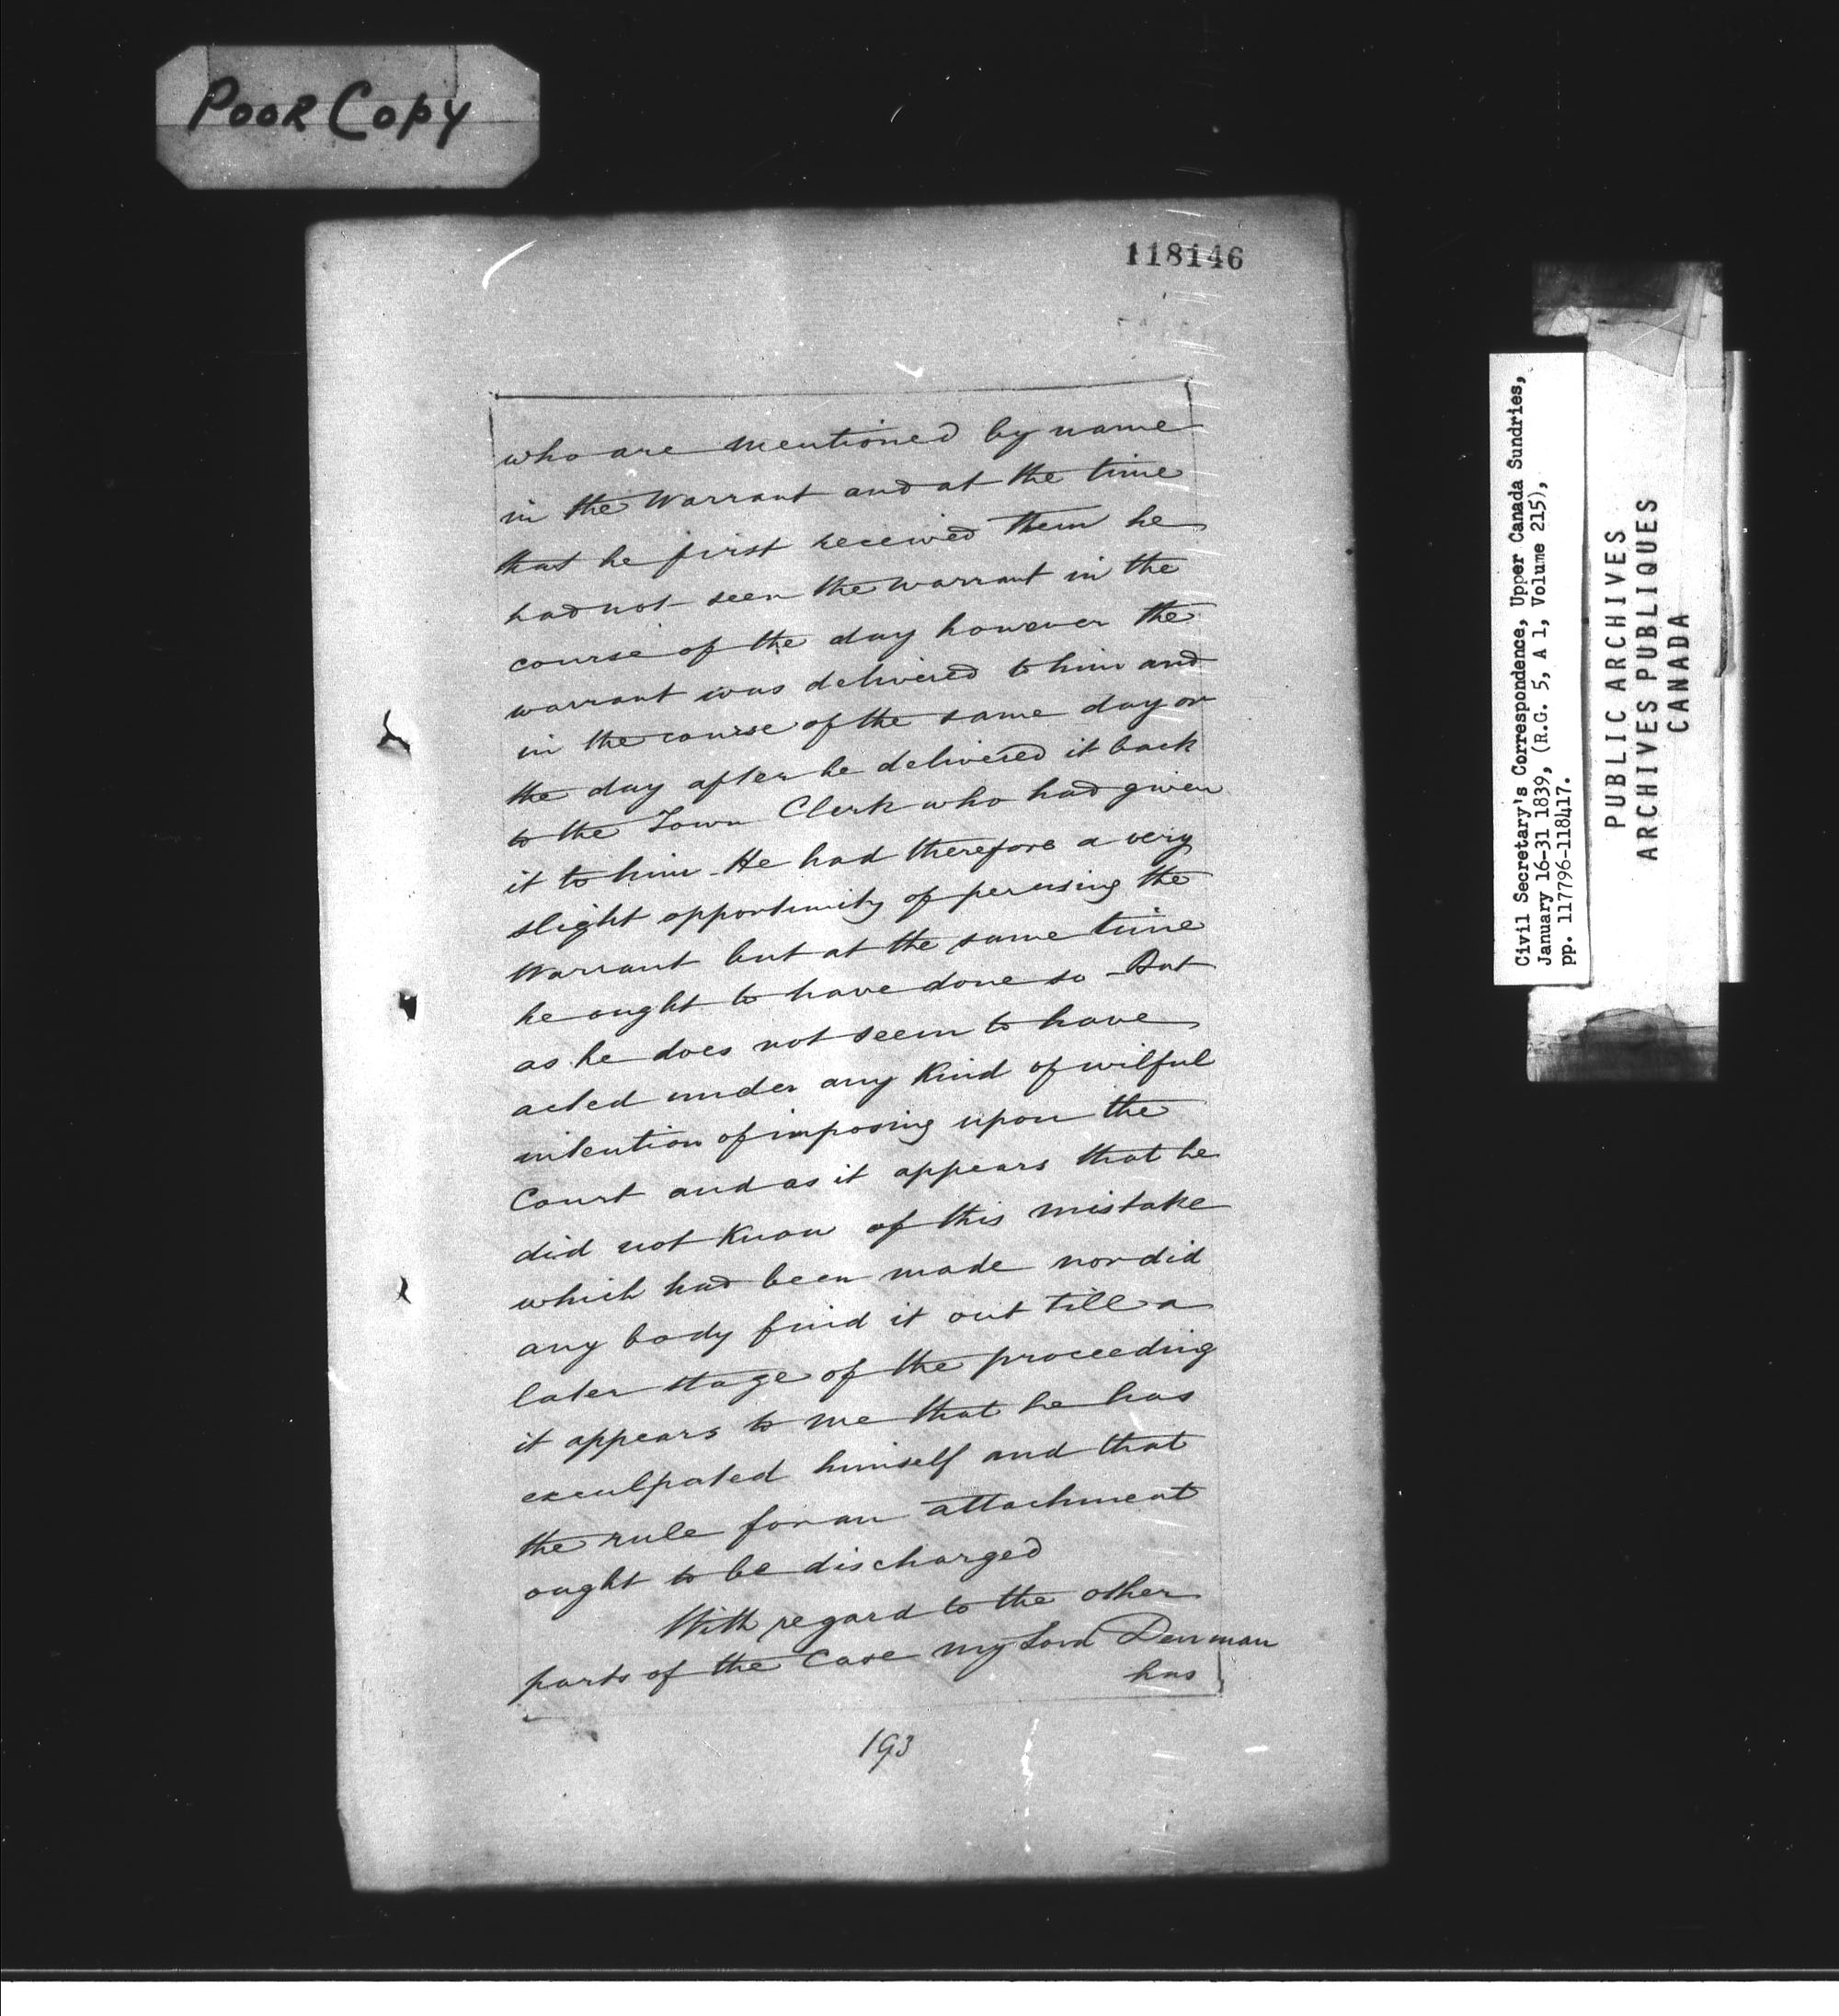 POOR COPY
118146
who are mentioned by name
in the Warrant and at the time
that he first received them he
had not seen the warrant in the
course of the day however the
warrant was delivered to him and
in the course of the same day or
the day after he delivered it back
to the Town Clerk who had given
it to him - He had therefore a very
slight opportunity of perusing the
Warrant but at the same time
he ought to have done so - But
as he does not seem to have
acted under any Kind of wilful
intention of imposing upon the
Court and as it appears that he
did not Know of this mistake
which had been made nor did
any body find it out till a
later stage of the proceeding
it appears to me that he has
exculpated himself and that
the rule for an attachment
ought to be discharged
With regard to the other
parts of the Case my Lord Denman
has
193
Civil Secretary's Correspondence, Upper Canada Sundries,
January 16-31 1839, (R.G. 5, A 1, Volume 215),
pp. 117796-118417.
PUBLIC ARCHIVES
ARCHIVES PUBLIQUES
CANADA